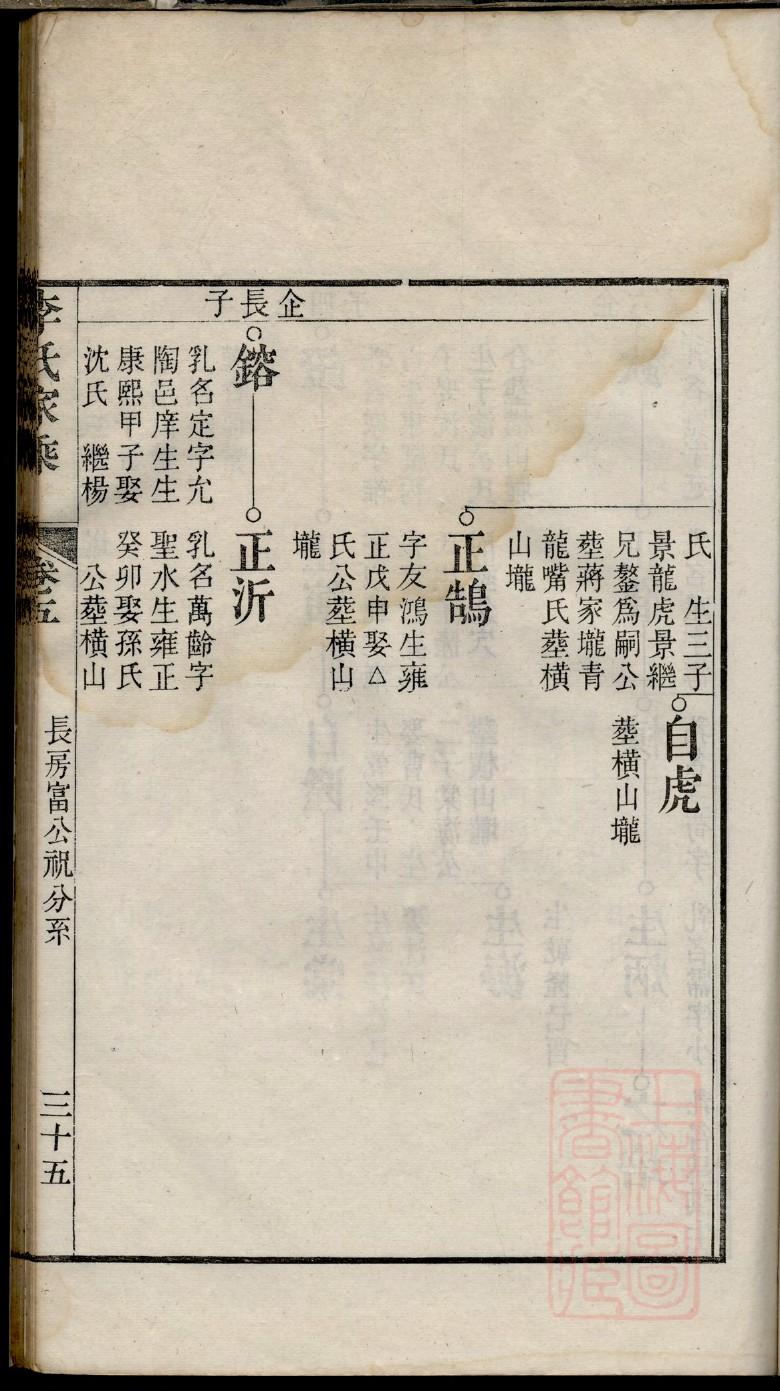 氏　生三子
景龍虎景繼
兄鏊爲嗣公
塟蔣家壠青
龍嘴氏塟橫
山壠
自虎
塟橫山壠
正鵠
字友鴻生雍
正戊申娶△
氏公塟橫山
壠
企長子
鎔
乳名定字允
陶邑庠生生
康熙甲子娶
沈氏　繼楊
正沂
乳名萬齡字
聖水生雍正
癸卯娶孫氏
公塟橫山
李氏家乘
卷五
長房富公祝分系
三十五
上海圖書館藏